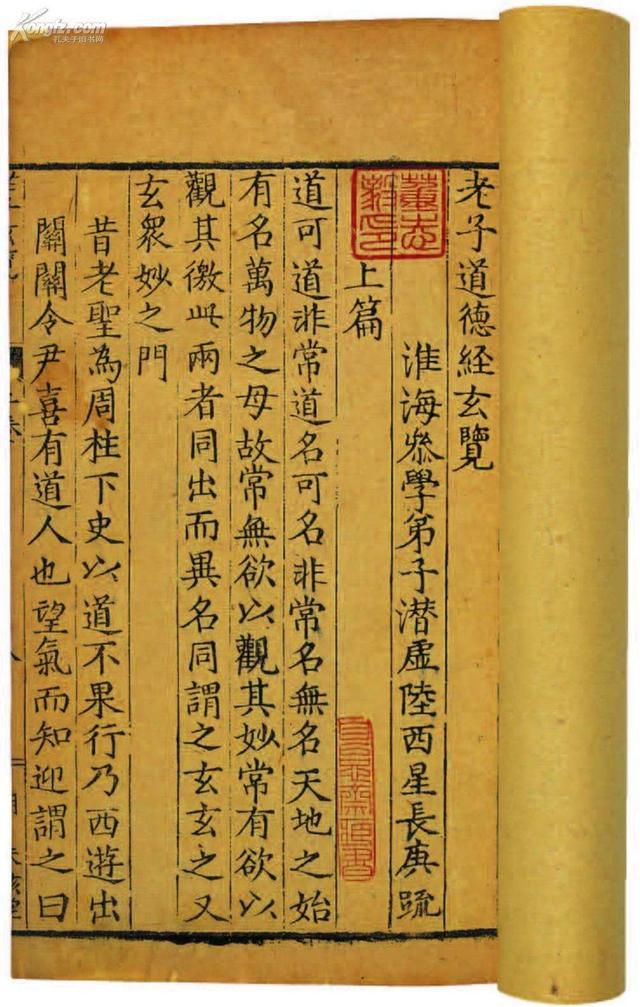 Kongfz.com
孔夫子旧书网
老子道德經玄覽
淮海叅學弟子潜虛陸西星長庚䟽
上篇
道可道非常道名可名非常名無名天地之始
有名萬物之母故常無欲以觀其妙常有欲以
觀其徼此兩者同出而異名同謂之玄玄之又
玄衆妙之門
昔老聖為周柱下史以道不果行乃西遊出
關關令尹喜有道人也望氣而知迎謂之曰